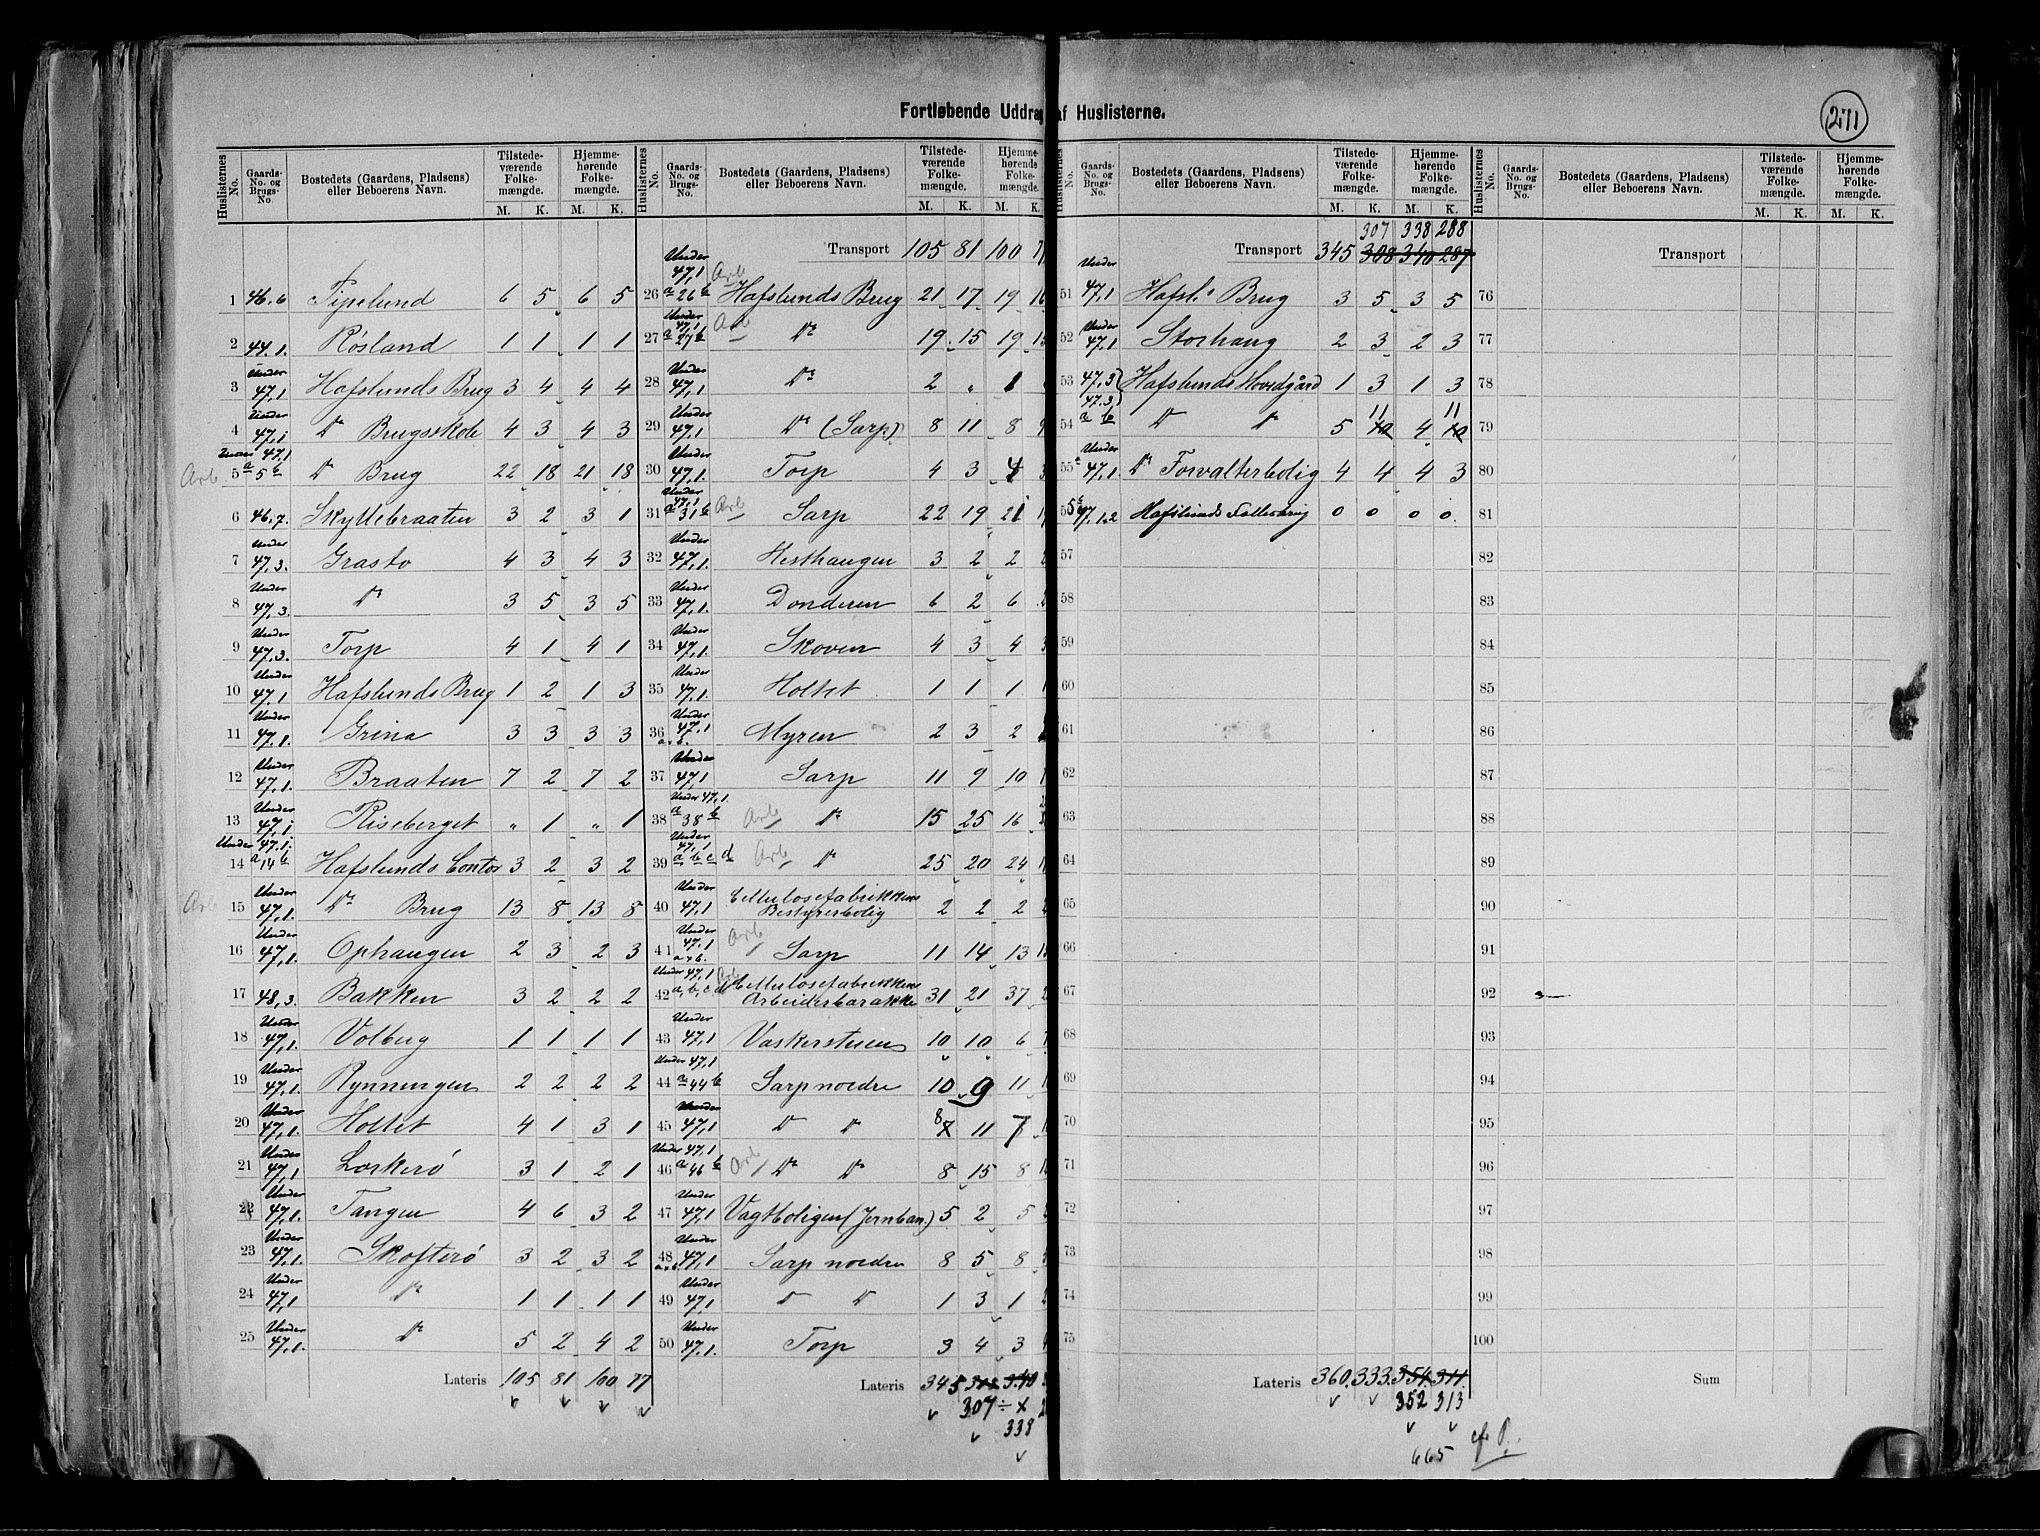 Fortløbende Uddrag af Huslisterne.
271
Huslisternes No. Gaards-No. og Brugs-No Bostedets (Gaardens, Pladsens) eller Beboerens Navn. Tilstedeværende Folkemængde. M. K. Hjemmehørende Folkemængde. M. K.
1 46.6 Pipelund 6 5 6 5
2 44.1. Røsland 1 1 1 1
3 Under 47,1 Hafslunds Brug 3 4 4 4
4 Under 47,1 Do Brugsskole 4 3 4 3
Arb. 5 a 5 b Under 47,1 Do Brug 22 18 21 18
6 46.7. Skyttebraaten 3 2 3 1
7 Under 47,3. Grasto 4 3 4 3
8 Under 47,3. Do 3 5 3 5
9 Under 47,3. Torp 4 1 4 1
10 Under 47.1 Hafslunds Brug 1 2 1 3
11 Under 47.1. Grina 3 3 3 3
12 Under 47,1. Braaten 7 2 7 2
13 Under 47,1. Riseberget " 1 " 1
14 a 14 b Under 47,1. Hafslunds Contor 3 2 3 2
Arb. 15 Under 47,1. Do Brug 13 8 13 8
16 Under 47,1. Ophaugen 2 3 2 3
17 48,3. Bakken 3 2 2 2
18 Under 47,1. Volberg 1 1 1 1
19 Under 47,1. Rynningen 2 2 2 2
20 Under 47,1. Holtet 4 1 3 1
21 Under 47,1 Loskerø 3 1 2 1
22 Under 47,1. Tangen 4 6 3 2
23 Under 47,1. Skofterø 3 2 3 2
24 Under 47,1 Do 1 1 1 1
25 Under 47,1. Do 5 2 4 2
Lateris 105 81 100 77
Huslisternes No. Gaards-No. og Brugs-No. Bostedets (Gaardens, Pladsens) eller Beboerens Navn. Tilstedeværende Folkemængde. M. K. Hjemmehørende Folkemængde. M. K.
Transport 105 81 100
26 Under 47,1 a 26 b Arb Hafslunds Brug 21 17 19 16
27 Under 47,1 a 27 b Arb Do 19 15 19
28 Under 47,1. Do 2 " 1
29 Under 47,1 Do (Sarp) 8 11 8
30 Under 47,1. Torp 4 3 4
31 Under 47,1 a 31 b Arb Sarp 22 19 21
32 Under 47,1. Hesthaugen 3 2 2
33 Under 47,1. Donderen 6 2 6
34 Under 47,1 Skoven 4 3 4
35 Under 47,1. Holtet 1 1 1
36 a.b. Under 47,1 Myren 2 3 2
37 Under 47,1 Sarp 11 9 10
38 Under 47,1. a 38 b Arb Do 15 25 16
39 Under 47,1 a b c d Arb Do 25 20 24
40 Under 47,1 Cellulosefabrikkens Bestyrerbolig 2 2 2
41 a.b. Under 47,1 Arb Sarp 11 14 13
42 Under 47,1 a, b, c d Arb Cellulosefabrikkens Arbeiderbarakke 31 21 37
43 Under 47,1 Vaskerstuen 10 10 6
44 Under 47,1 a 44 b Sarp nordre 10 9 11
45 Under 47,1 Do Do 8 11 7
46 Under 47,1 a 46 b Arb Do Do 8 15 8
47 Under 47,1 Vagtboligen (Jernban.) 5 2 5
48 a.b. Under 47,1. Sarp nordre 8 5 8
49 Under 47,1 Do Do 1 3 1
50 Under 47,1. Torp 3 4 3
Lateris 345 308 340
307 ÷ x
338
Huslisternes No. Gaards-No. og Brugs-No. Bostedets (Gaardens, Pladsens) eller Beboerens Navn. Tilstedeværende Folkemængde. M. K. Hjemmehørende Folkemængde. M. K.
307 338 288
Transport 345 308 340 287
51 Under 47,1 Hafsl.s Brug 3 5 3 5
52 Under 47,1 Storhaug 2 3 2 3
53 47,3 Hafslunds Hovedgård 1 3 1 3
54 47.3 a b Do Do 5 11 4 11
55 Under 47,1. Do Forvalterbolig 4 4 4 3
56 47,1.2 Hafslunds 0 0 0 0.
57
58
59
60
61
62
63
64
65
66
67
68
69
70
71
72
73
74
75
Lateris 360. 333. 354. 311.
352 313
665
Huslisternes No. Gaards-No. og Brugs-No. Bostedets (Gaardens, Pladsens) eller Beboerens Navn. Tilstedeværende Folkemængde. M. K. Hjemmehørende Folkemængde. M. K.
Transport
76
77
78
79
80
81
82
83
84
85
86
87
88
89
90
91
92
93
94
95
96
97
98
99
100
Sum